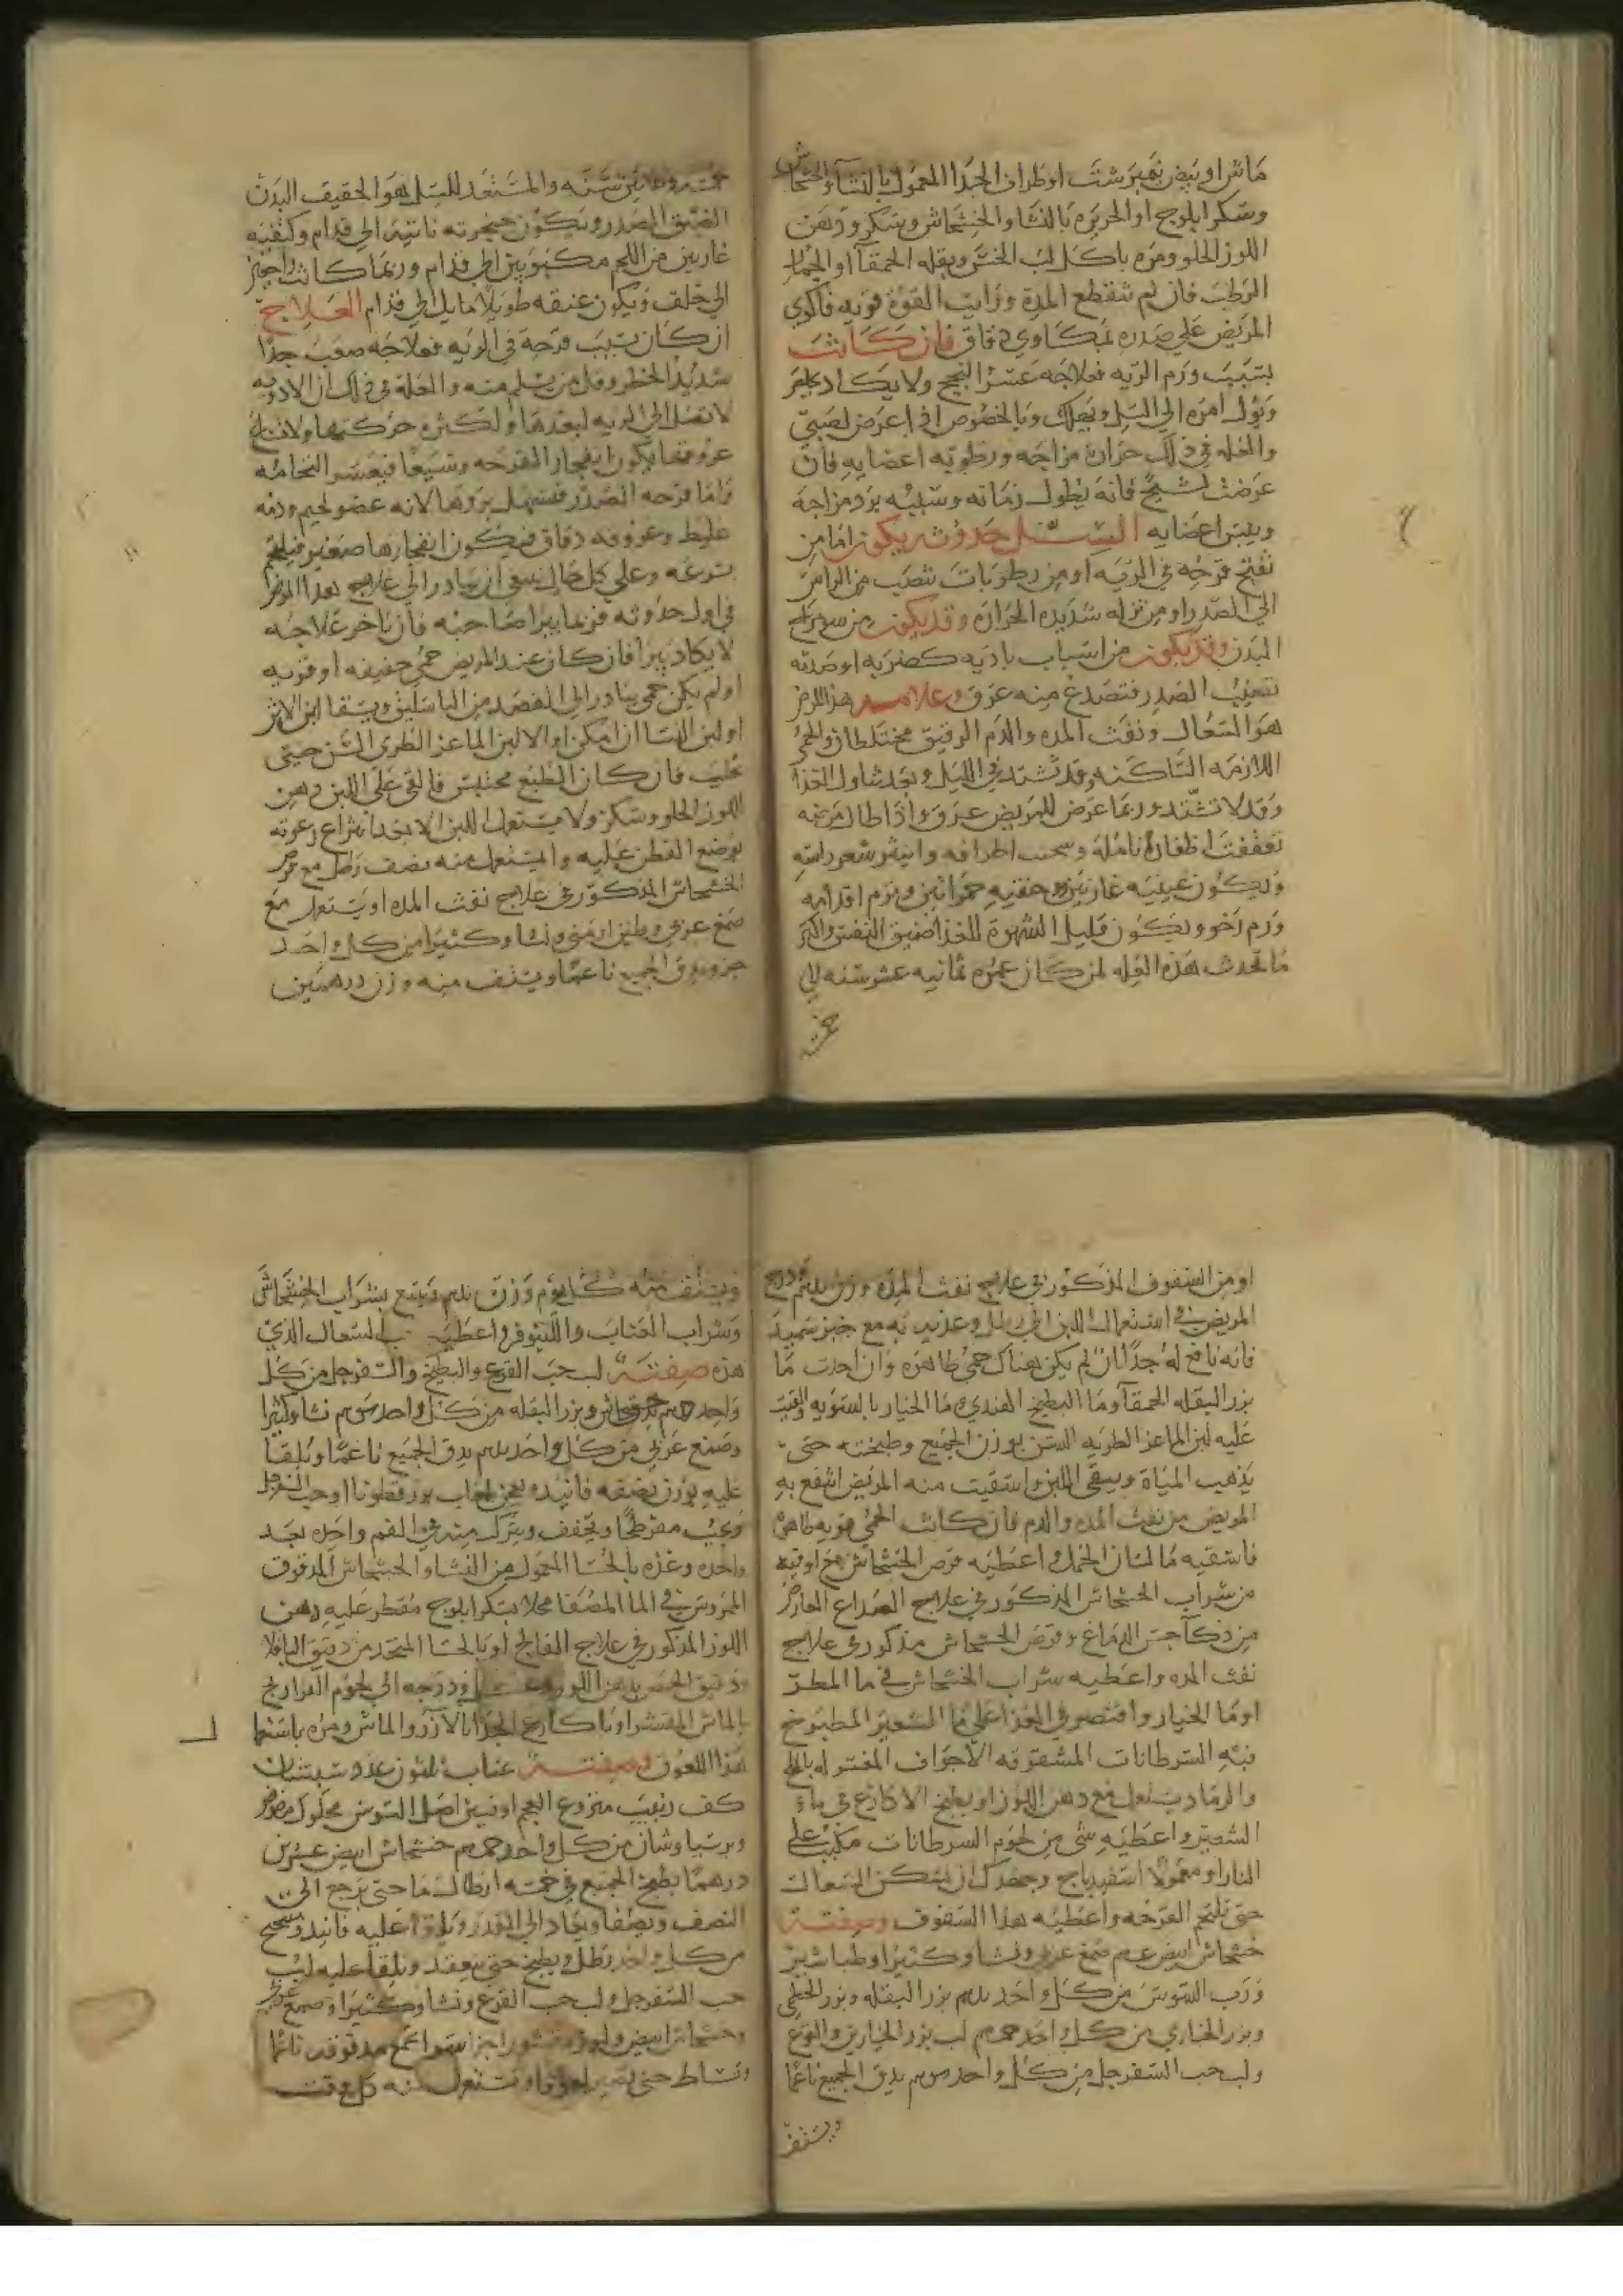 ماش او بيض نمبرشت او اطراف الجدا المعمول بالنشا والخشخاش
وسكر ابلوج او الحريره بالنشا والخشخاش وسكر ودهن
اللوز الحلو ومره باكل لب الخس وبقله الحمقآ او الخيار
الرطب فان لم تنقطع المدة ورايت القوة قويه فاكوي
المريض علي صدره بمكاوي دقاق فان كانت
بسبب ورم الريه فعلاجه عسر النجح ولا يكاد
ويول امره الي السل ويهلك وبالخصوص اذا عرض لصبي
والعله في ذلك حرارة مزاجه ورطوبه اعضايه فان
عرضت لشيخ فانه يطول زمانه وسببه برد مزاجه
ويبس اعضايه السل حدوثه يكون اما من
تفتح قرحه في الريه او من رطوبات تنصب من الراس
الي الصدر او من نزله شديده الحراره وقد يكون من سو مزاج
البدن وقد يكون من اسباب باديه كضربه او صدمه
تصيب الصدر فتصدع منه عرق وعلامه هذا المرض
هو السعال ونفث المده والدم الرقيق مختلطان والحمي
اللازمه الساكنه وقد تشتد في الليل وبعد تناول الغذا
وقد لا تشتد وربما عرض للمريض عرق واذا طال مرضه
تعقفت اظفار انامله وسخنت اطرافه وانتثر شعر راسه
وتكون عينيه غارتين وجفنيه حمراتين وترم اقدامه
ورم رخو ويكون قليل الشهوة للغذا ضيق النفس واكثر
ما تحدث هذه العله لمن كان عمره ثمانيه عشر سنه الي
خمسه
خمسه وثلاثين سنه والمستعد للسل هو الخفيف البدن
الضيق الصدر وتكون حنجرته ناتيه الي قدام وكتفيه
عاريين من اللحم مكبوبين الي قدام وربما كانت راجعين
الي خلف ويكون عنقه طويلا مايل الي قدام العلاج
ان كان بسبب قرحه في الريه فعلاجه صعب جدا
شديد الخطر وقل من يسلم منه والعله في ذلك ان الادويه
لا تصل الي الريه لبعدها ولكثره حركتها ولان
عروقها يكون انفجار القرحه وتسيعا فيعسر التحامه
واما قرحه الصدر فسهل بروها لانه عضو لحيم ودمه
غليظ وعروقه دقاق فيكون انفجارها صغير فيلتحم
بسرعه وعلي كل حال ينبغي ان يبادر الي علاج هذا المرض
في اول حدوثه فربما يبرا صاحبه فان تاخر علاجه
لا يكاد يبرا فان كان عند المريض حمي خفيفه او قويه
او لم يكن حمي يبادر الي الفصد من الباسليق ويسقا لبن الاتن
او لبن النسا ان امكن والا لبن الماعز الطري السن حين
يحلب فان كان الطبع محتبس فالقي علي اللبن دهن
اللوز الحلو وسكر ولا يستعمل اللبن الا بعد انتزاع رغوته
بوضع القطن عليه والمستعمل منه نصف رطل مع قرص
الخشخاش المذكور في علاج نفث المده او يستعمل مع
صمغ عربي وطين ارمني ونشا وكثيرا من كل واحد
جزو يدق الجميع ناعما ويستف منه وزن درهمين
او من السفوف المذكور في علاج نفث المده وزن درهم ودرج
المريض في استعمال اللبن الي رطل وغذيه به مع خبز سميد
فانه نافع له جدا ان لم يكن هناك حمي ظاهره وان اخدت ما
بزر البقله الحمقآ وما البطيخ الهندي وما الخيار بالسويه والقيت
عليه لبن الماعز الطريه السن بوزن الجميع وطبخته حتي
يذهب المياة ويبقي اللبن واسقيت منه المريض انتفع به
المريض من نفث المده والدم فان كانت الحمي قويه ظاهرة
فاسقيه ما لسان الحمل واعطيه قرص الخشخاش مع اوقيه
من شراب الخشخاش المذكور في علاج الصداع العارض
من ذكآ حس الدماغ وقرص الخشخاش مذكور في علاج
نفث المده واعطيه شراب الخشخاش في ما المطر
او ما الخيار واقتصر في الغذا علي ما الشعير المطبوخ
فيه السرطانات المشقوقه الاجواف المغسوله بالملح
والرماد يستعمل مع دهن اللوز او يطبخ الاكارع في ماء
الشعير واعطيه شي من لحوم السرطانات مكبب علي
النار او معمولا اسفيدباج وجهدك ان يسكن السعال
حتي تلتحم القرحه واعطيه هذا السفوف وصفته
خشخاش ابيض صمغ عربي ونشا وكثيرا وطباشير
ورب السوس من كل واحد درهم بزر البقله وبزر الخطمي
وبزر الخبازي من كل واحد لب بزر الخيارين والقرع
ولب حب السفرجل من كل واحد يدق الجميع ناعما
ويستف
ويستف منه كل يوم وزن درهم ويتبع بشراب الخشخاش
وشراب العناب واللينوفر واعطيه حب السعال الذي
هذه صفته لب حب القرع والبطيخ والسفرجل من كل
واحد خشخاش وبزر البقله من كل واحد نشا وكثيرا
وصمغ عربي من كل واحد درهم يدق الجميع ناعما ويلقا
عليه بوزن نصفه فانيد يعجن بلعاب بزر قطونا او حب السفرجل
ويحبب مفرطحا ويجفف ويترك منه في الفم واحده بعد
واحده وغذه بالحسا المعمول من النشا والخشخاش المدقوق
الممروس في الما المصفا محلا بسكر ابلوج مقطر عليه دهن
اللوز المذكور في علاج الفالج او بالحسا المتخذ من دقيق الباقلا
ودقيق الحمص بدهن اللوز ودرجه الي لحوم الفراريج
بالماش المقشر او باكارع الجدا بالارز والماش ومره باستعمال
هذا اللعوق وصفته عناب ثلثون عدد سبستان
كف زبيب منزوع العجم اوقيتين اصل السوس محكوك مرضوض
وبرسياوشان من كل واحد خشخاش ابيض عشرين
درهما يطبخ الجميع في خمسه ارطال ما حتي يرجع الي
النصف ويصفا ويعاد الي القدر ويلقا عليه فانيد وميبختج
من كل واحد رطل ويطبخ حتي ينعقد ويلقا عليه لب
حب السفرجل ولب حب القرع ونشا وكثيرا وصمغ عربي
وخشخاش ابيض ولوز مقشور اجزا سوا مدقوقه ناعما
وتساط حتي تصير لعوقا وتستعمل منه كل وقت